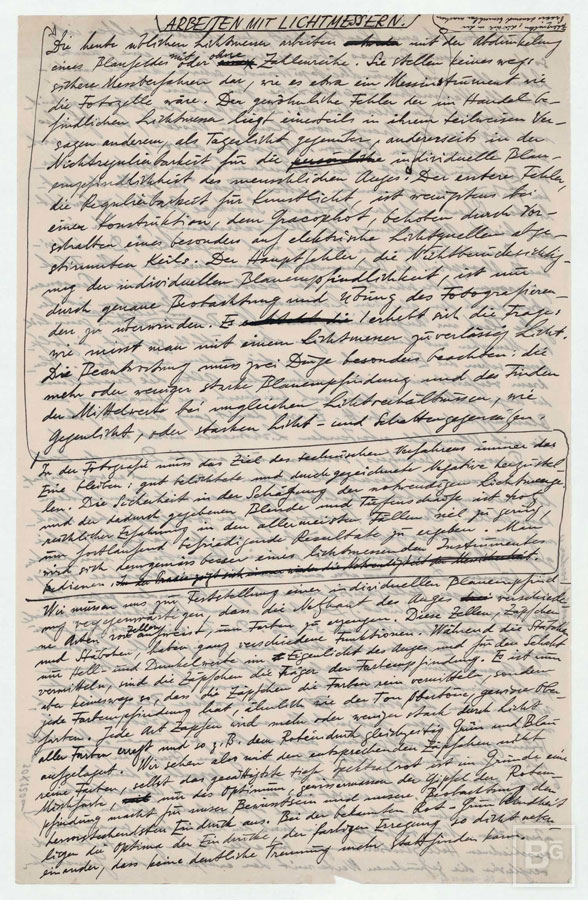 ARBEITEN MIT LICHTMESSERN.
Die heute üblichen Lichtmesser arbeiten mit der Abdunkelung
eines Blaufeldes mit oder ohne Zahlenreihe. Sie stellen keineswegs
sichere Messverfahren dar, wie es etwa ein Messinstrument wie
die Fotozelle wäre. Der gewöhnliche Fehler der im Handel be-
findlichen Lichtmesser liegt einesteils in ihrem teilweisen Ver-
sagen anderem, als Tageslicht gegenüber, andererseits in der
Nichtregulierbarkeit für die individuelle Blau-
empfindlichkeit des menschlichen Auges. Der erstere Fehler,
die Regulierbarkeit für Kunstlicht, ist wenigstens bei
einer Konstruktion, dem Gracophot, behoben durch Vor-
schalten eines besonders auf elektrische Lichtquellen abge-
stimmten Keils. Der Hauptfehler, die Nichtberücksichtig-
ung der individuellen Blauempfindlichkeit, ist nur
durch genaue Beobachtung und Übung des Fotografieren-
den zu überwinden. Es erhebt sich die Frage:
wie misst man mit einem Lichtmesser zuverlässig Licht.
Die Beantwortung muss zwei Dinge besonders beachten: die
mehr oder weniger starke Blauempfindung und das Finden
der Mittelwerte bei ungleichen Lichtverhältnissen, wie
Gegenlicht, oder starken Licht- und Schattengegensätzen.
In der Fotografie muss das Ziel des technischen Verfahrens immer das
Eine bleiben: gut belichtete und durchgezeichnete Negative herzustel-
len. Die Sicherheit in der Schätzung der notwendigen Lichtmenge
und der dadurch gegebenen Blende und Tiefenschärfe ist trotz
reichlicher Erfahrung in den allermeisten Fällen viel zu gering,
um fortlaufend befriedigende Resultate zu ergeben. Man
wird sich demgemäss besser eines lichtmessenden Instrumentes
bedienen.
Wir müssen uns zur Feststellung einer individuellen Blauempfind-
ung vergegenwärtigen, dass die Netzhaut des Auges verschiede-
ne Arten Zellen aufweist, um Farben zu erzeugen. Diese Zellen, Zäpfchen
und Stäbchen, haben ganz verschiedene Funktionen. Während die Stäbchen
nur Hell- und Dunkelwerte im Eigenlicht des Auges und für den Intellekt
vermitteln, sind die Zäpfchen die Träger der Farbempfindung. Es ist nun
aber keineswegs so, dass die Zäpfchen die Farben rein vermitteln, sondern
jede Farbempfindung hat, ähnlich wie der Ton Obertöne, gewisse Ober-
farben. Jede Art Zapfen wird mehr oder weniger stark durch Licht
aller Farben erregt und so z.B. dem Rot eindruck gleichzeitig Grün und Blau
aufgelagert. Wir sehen also mit den entsprechenden Zäpfchen nicht
reine Farben, selbst das gesättigtste tiefe Spektralrot ist im Grunde eine
Mischfarbe, nur das Optimum, gewissermassen der Gipfel der Roten-
pfindung macht für unser Bewusstsein und unsere Beobachtung den
hervorstechendsten Eindruck aus. Bei der bekannten Rot-Grün Blindheit
liegen die Optima der Eindrücke, der farbigen Erregung so dicht neben-
einander, dass keine deutliche Trennung mehr stattfinden kann.
BG